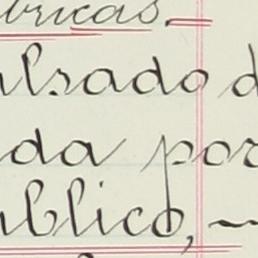 bricas.
ulsado d
da por
ublico, —